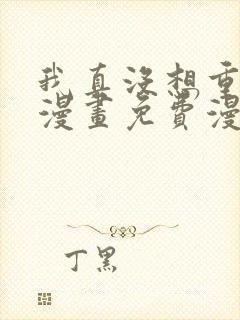 我真没想重
漫畫免費漫
丁黑